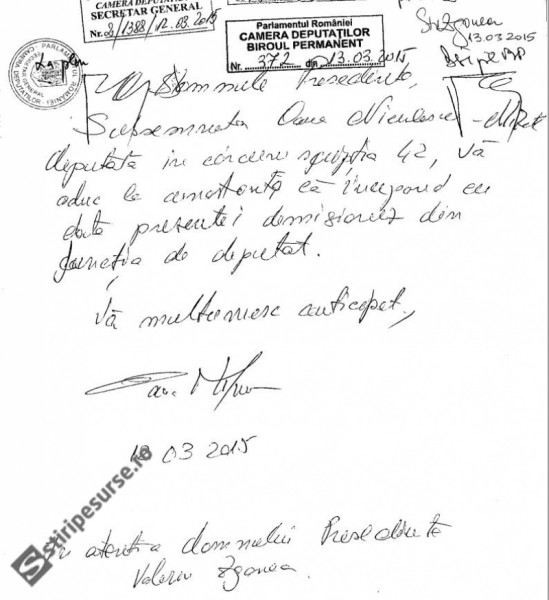 CAMERA DEPUTAȚILOR
SECRETAR GENERAL
Nr. 2/1388/12.03.2015
Parlamentul României
CAMERA DEPUTAȚILOR
BIROUL PERMANENT
Nr. 372 din 13.03.2015
13.03.2015
Domnule Presedinte,
Subsemnata Oana Niculescu-Mizil
deputată în circumscripția 42, vă
aduc la cunostință că începând cu
data prezentei demisionez din
funcția de deputat.
Vă multumesc anticipat,
03 2015
În atenția domnului Presedinte
Valeriu Zgonea.
stiripesurse.ro